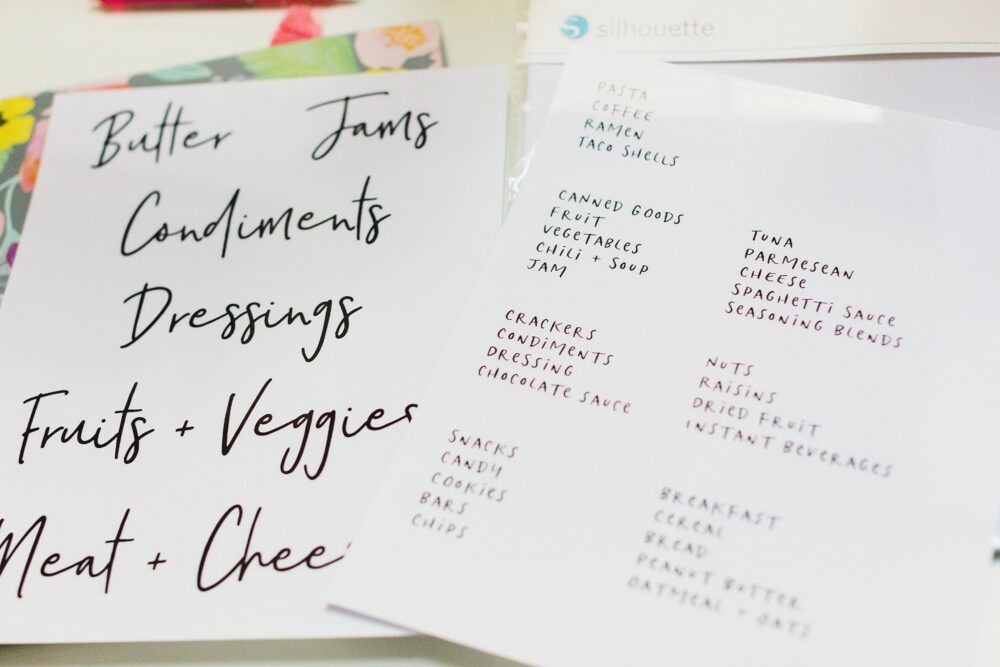 silhouette
Butter Jams
Condiments
Dressings
Fruits + Veggies
Meat + Chee
PASTA
COFFEE
RAMEN
TACO SHELLS
CANNED GOODS
FRUIT
VEGETABLES
CHILI + SOUP
JAM
CRACKERS
CONDIMENTS
DRESSING
CHOCOLATE SAUCE
SNACKS
CANDY
COOKIES
BARS
CHIPS
TUNA
PARMESEAN
CHEESE
SPAGHETTI SAUCE
SEASONING BLENDS
NUTS
RAISINS
DRIED FRUIT
INSTANT BEVERAGES
BREAKFAST
CEREAL
BREAD
PEANUT BUTTER
OATMEAL + OATS